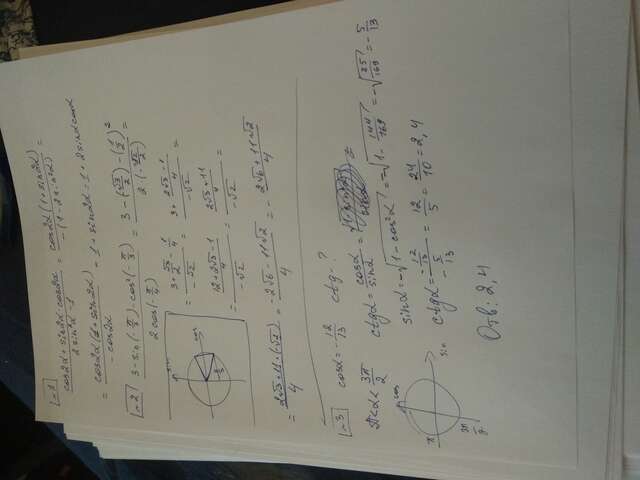 №1
(cos2α + sin2α·cos2α)/(2sin²α - 1) = (cos2α(1+sin2α))/(-(1-2sin²α)) =
= (cos2α(1+sin2α))/(-cos2α) - 1 + sin2α = 1 + 2sinαcosα
№2 (3 - sin(-π/3) - cos²(-π/3))/(2cos(-π/4)) = (3 - (√3/2) - (1/2)²)/(2·(-√2/2)) =
sin
cos
π/3
= (3 + √3/2 - 1/4)/(-√2) = (3 + (2√3 - 1)/4)/(-√2) =
= ((12 + 2√3 - 1)/4)/(-√2) = ((2√3 + 11)/4)/(-√2) =
= (2√3 + 11·(-√2))/4 = (-2√6 - 11√2)/4 = - (2√6 + 11√2)/4
№3 cosα = -12/13 ctg - ?
π < α < 3π/2 ctgα = cosα/sinα =
sinα = -√(1 - cos²α) = -√(1 - 144/169) = -√(25/169) = -5/13
cos
π
sin
3π/2
ctgα = (-12/13)/(-5/13) = 12/5 = 24/10 = 2,4
Отв: 2,4